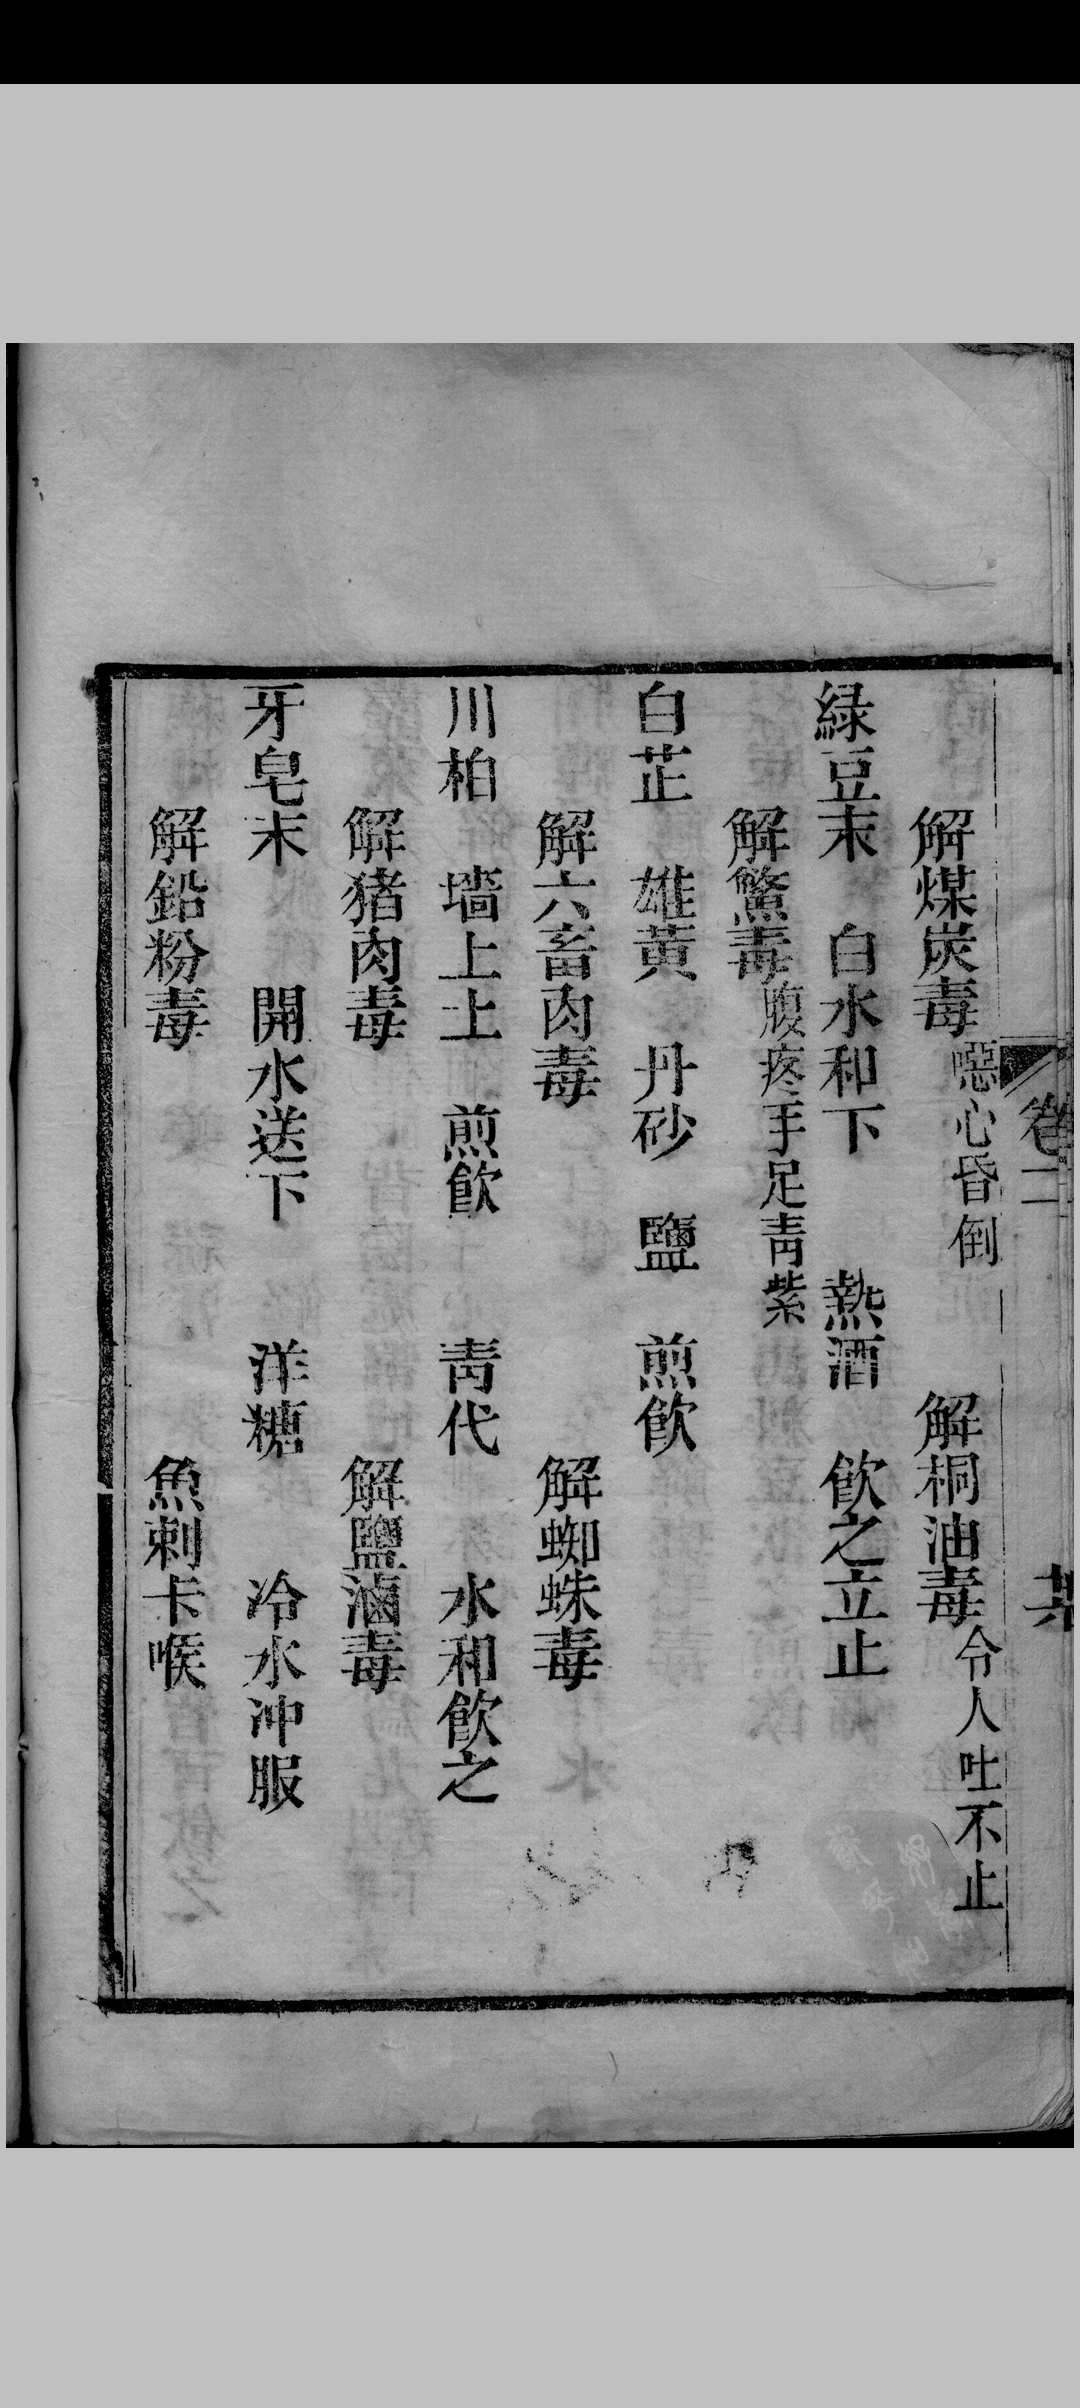 卷二
解煤炭毒 噁心昏倒 解桐油毒 令人吐不止
緑豆末 白水和下 熱酒 飲之立止
解鱉毒 腹疼手足青紫
白芷 雄黄 丹砂 鹽 煎飲
解六畜肉毒 解蜘蛛毒
川柏 墙上土 煎飲 靑代 水和飲之
解猪肉毒 解鹽滷毒
牙皂末 開水送下 洋糖 冷水冲服
解鉛粉毒 魚刺卡喉